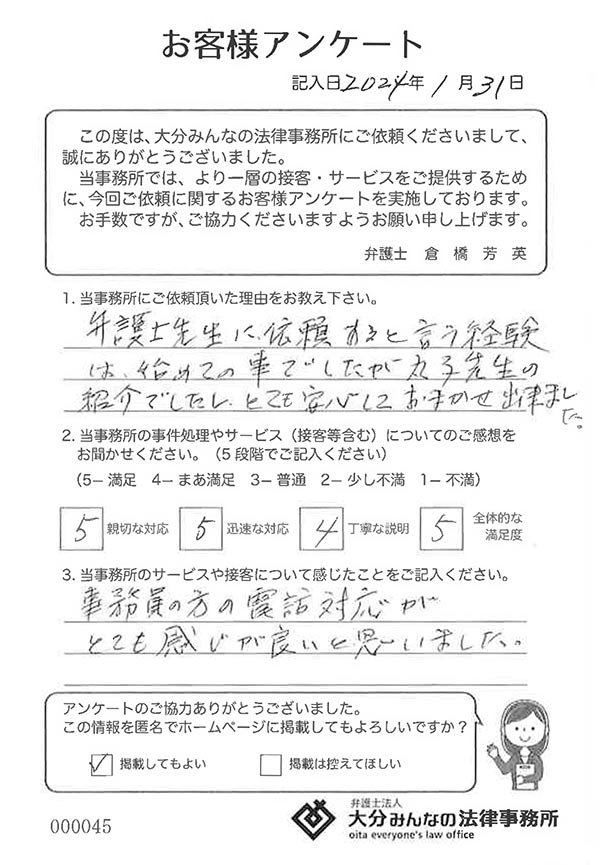 お客様アンケート
記入日2024年1月31日
この度は、大分みんなの法律事務所にご依頼くださいまして、
誠にありがとうございました。
当事務所では、より一層の接客・サービスをご提供するため
に、今回ご依頼に関するお客様アンケートを実施しております。
お手数ですが、ご協力くださいますようお願い申し上げます。
弁護士 倉橋芳英
1. 当事務所にご依頼頂いた理由をお教え下さい。
弁護士先生に、依頼すると言う経験
は、始めての事でしたが丸子先生の
紹介でしたし、とても安心しておまかせ出来ました。
2. 当事務所の事件処理やサービス（接客等含む）についてのご感想を
お聞かせください。（5段階でご記入ください）
（5－満足 4－まあ満足 3－普通 2－少し不満 1－不満）
5 親切な対応 5 迅速な対応 4 丁寧な説明 5 全体的な満足度
3. 当事務所のサービスや接客について感じたことをご記入ください。
事務員の方の電話対応が
とても感じが良いと思いました。
アンケートのご協力ありがとうございました。
この情報を匿名でホームページに掲載してもよろしいですか？
✓ 掲載してもよい □ 掲載は控えてほしい
弁護士法人
大分みんなの法律事務所
oita everyone's law office
000045